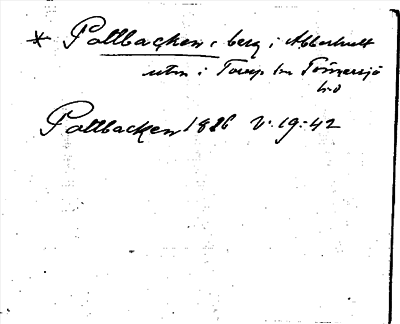 * Pottbacken, berg i Abborhult
utm i Torup sn Tönnersjö
hd
Pottbacken 1886 V: 19: 42